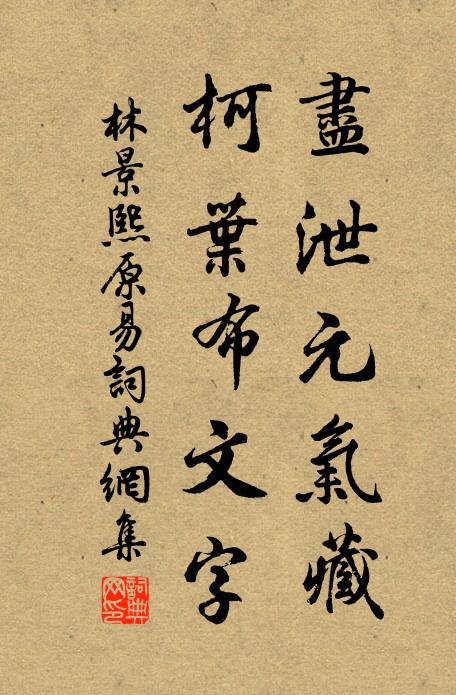 盡泄元氣藏
柯葉布文字
林景熙原易詞典網集
詞典網印